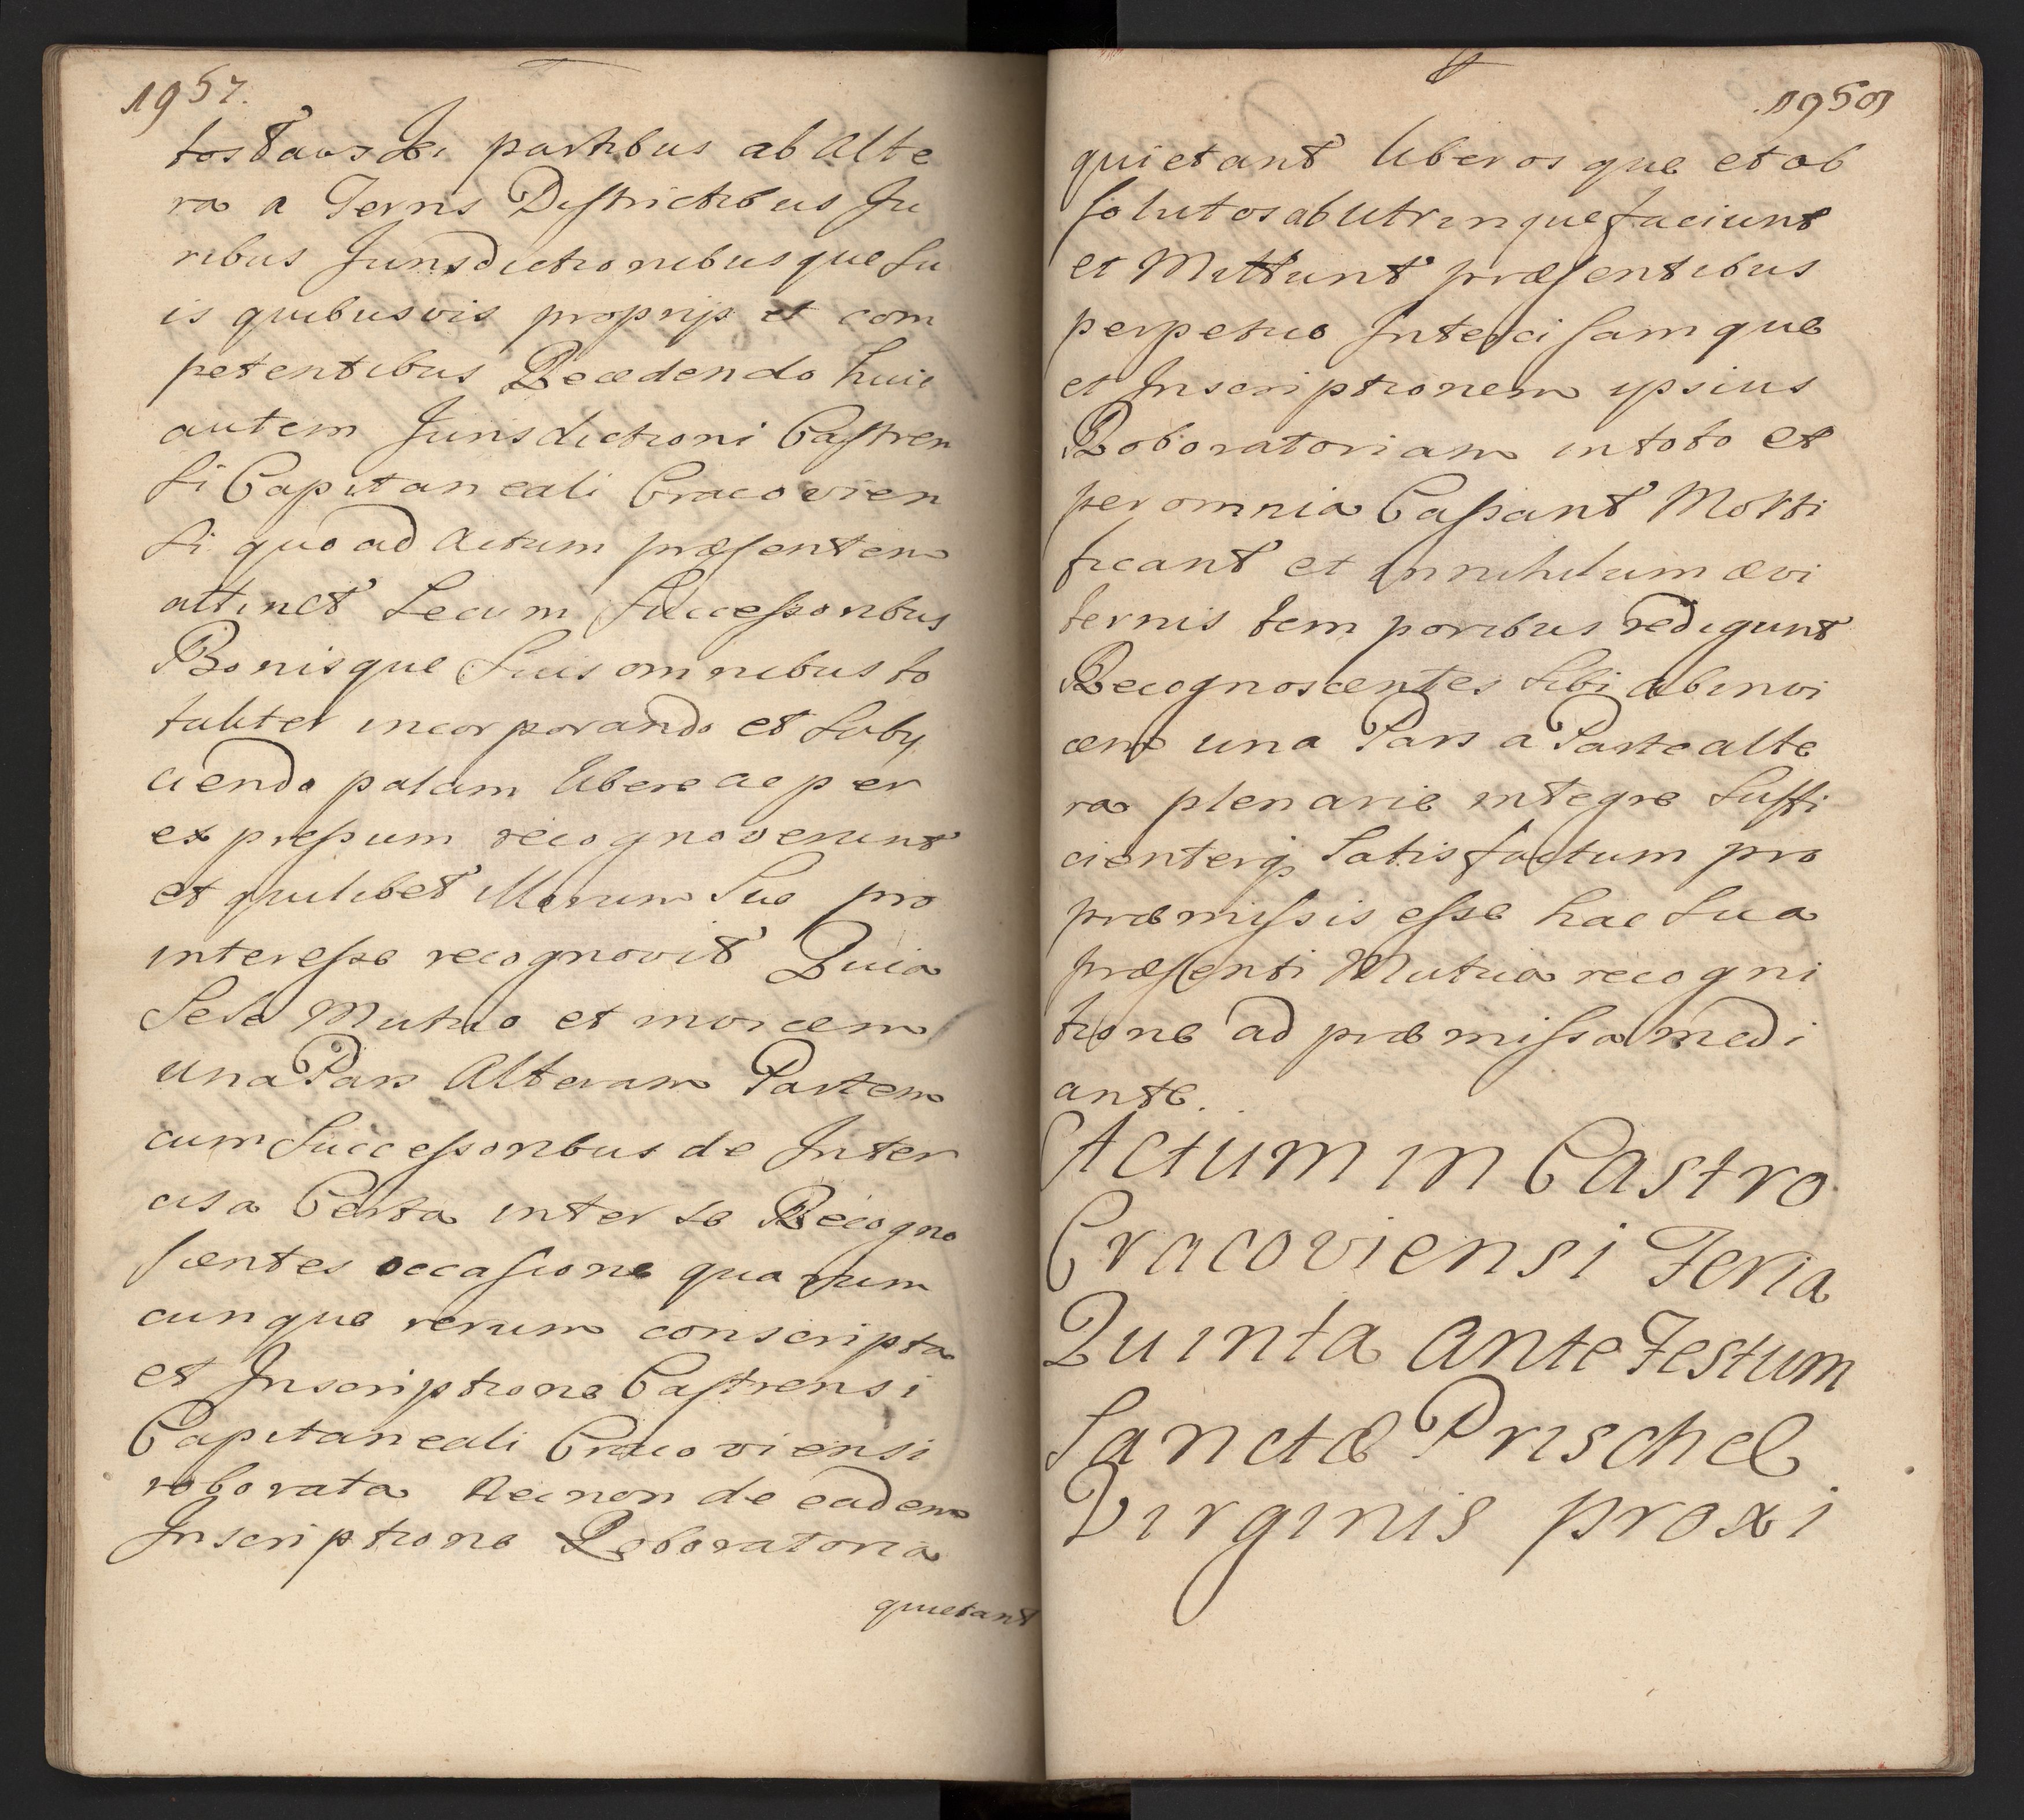 1957.
tostawski partibus ab alte
ra a Terris Districtibus Ju
ribus Jurisdictionibusque su
is quibusvis proprijs et com
petentibus Recedendo huic
autem Jurisdictioni Castren
si Capitaneali Cracovien
si quo ad Actum præsentem
attinet Secum Successoribus
Bonisque Suis omnibus to
taliter incorporando et Subij
ciendo palam libere ac per
expressum recognoverunt
et quilibet illorum Sua pro
interesse recognovit Quia
Sese Mutuo et invicem
una Pars Alteram Partem
cum Successoribus de Inter
cisa Certa inter se Recogno
scentes occasione quarum
cunque rerum conscripta
et Inscriptione Castrensi
Capitaneali Cracoviensi
roborata Necnon de eadem
Inscriptione Roboratoria
quietant
quietant liberosque et ab
solutos ab Utrinque faciunt
et Mittunt præsentibus
perpetuo Intercisamque
et Inscriptionem ipsius
Roboratoriam in toto et
per omnia Cassant Morti
ficant et in nihilum ævi
ternis temporibus redigunt
Recognoscentes Sibi ab invi
cem una Pars a Parte alte
ra plenarie integre Suffi
cienterq; Satisfactum pro
præmissis esse hac Sua
præsenti Mutua recogni
tione ad præmissa medi
ante.
Actum in Castro
Cracoviensi Feria
Quinta ante Festum
Sanctæ Prischæ
Virginis proxi